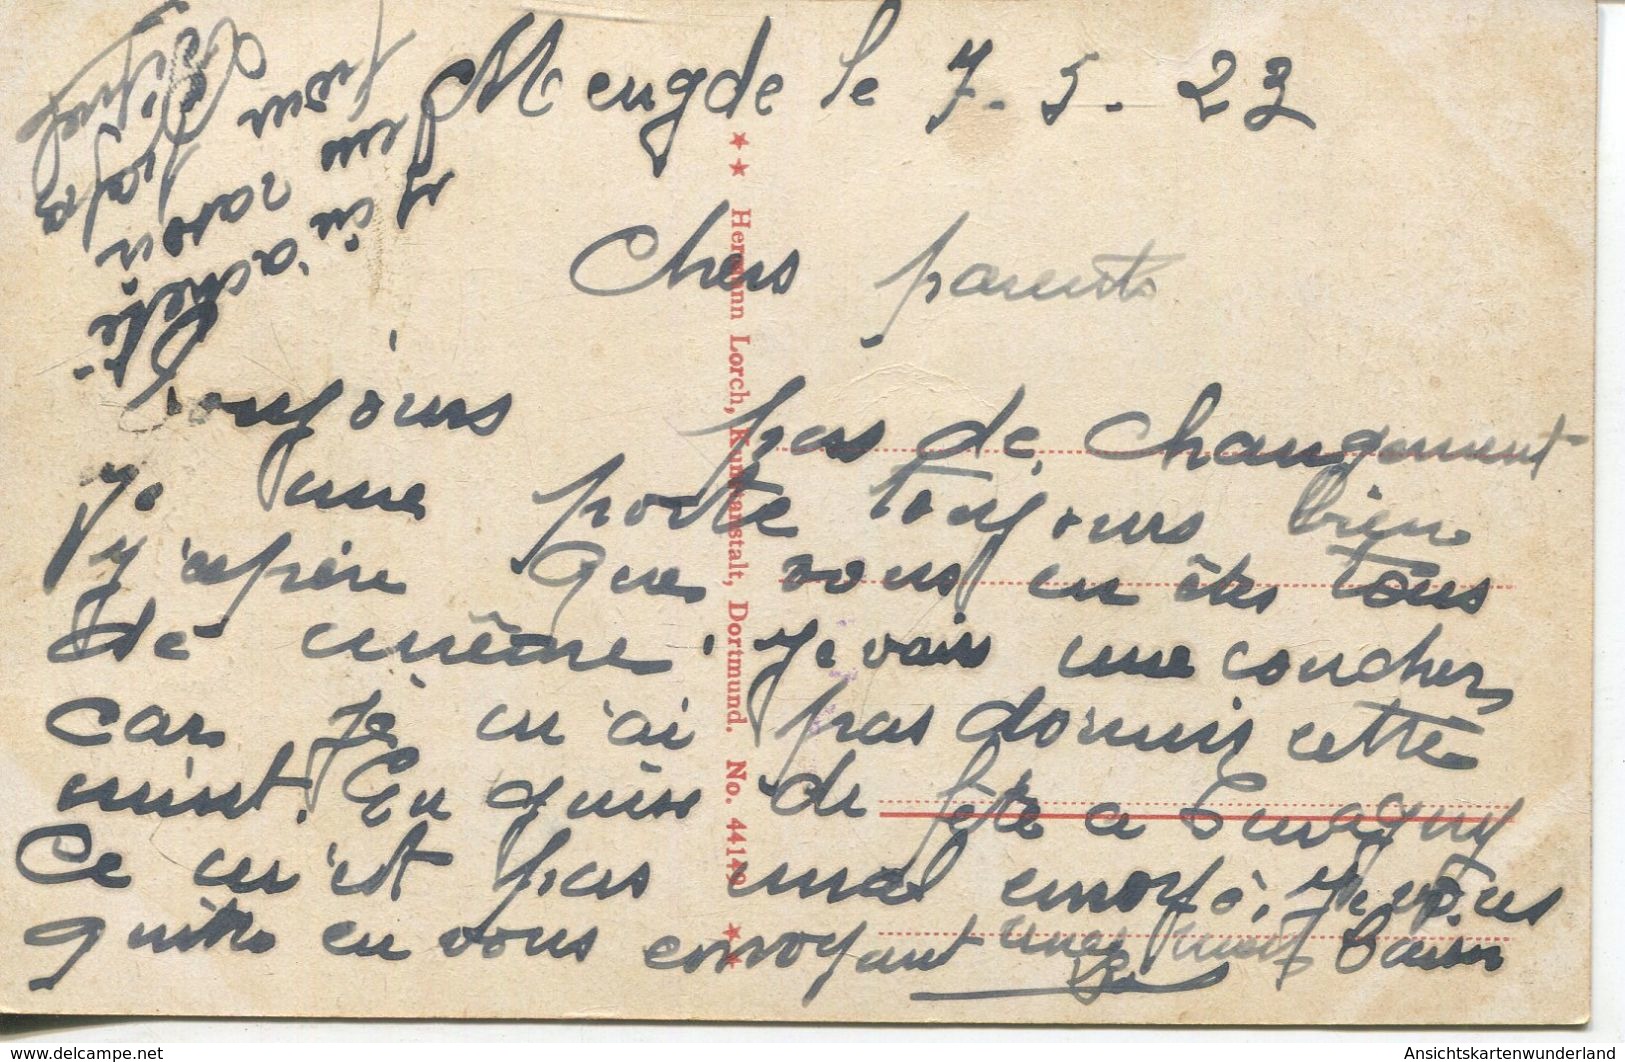 Mengde le 7.5.23
Chers parents
Toujours pas de changement
je me porte toujours bien
j'espère que vous en êtes tous
de même. je vais me coucher
car je n'ai pas dormis cette
nuist. En guise de fête a
Ce n'est pas mal envoyé, je vous
quitte en vous envoyant mes baisers
j'ai acheté
un rasoir
pour
Hermann Lorch, Kunstanstalt, Dortmund. No. 44149
AnsichtskartenWunderland
delcampe.net